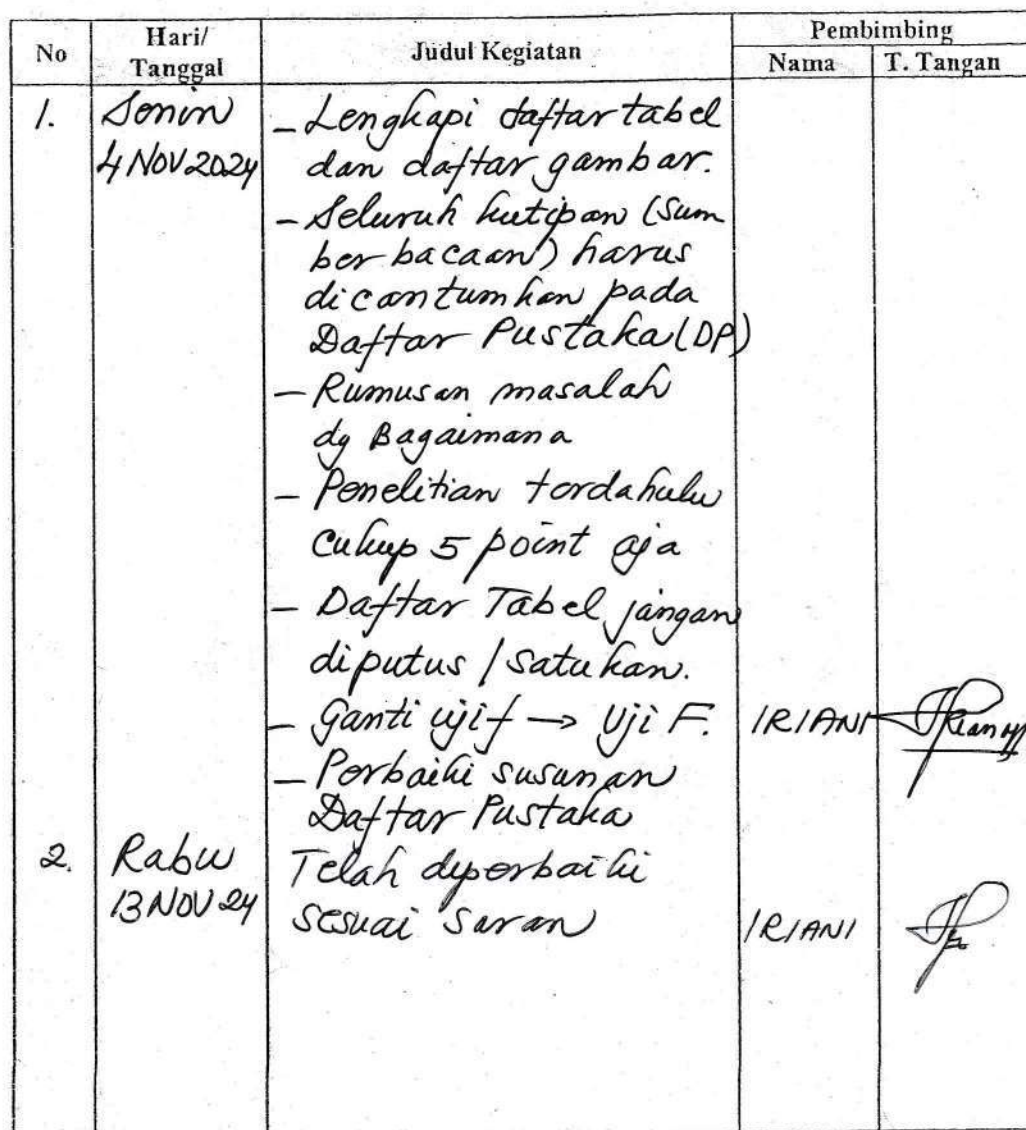 No Hari/ Tanggal Judul Kegiatan Pembimbing
Nama T. Tangan
1. Senin
4 NOV 2024
- Lengkapi daftar tabel
dan daftar gambar.
- Seluruh kutipan (Sum
ber bacaan) harus
dicantumkan pada
Daftar Pustaka (DP)
- Rumusan masalah
dg Bagaimana
- Penelitian terdahulu
cukup 5 point aja
- Daftar Tabel jangan
diputus / satukan.
- Ganti uji f → Uji F. IRIANI
- Perbaiki susunan
Daftar Pustaka
2. Rabu
13 NOV 24
Telah diperbaiki
sesuai saran IRIANI